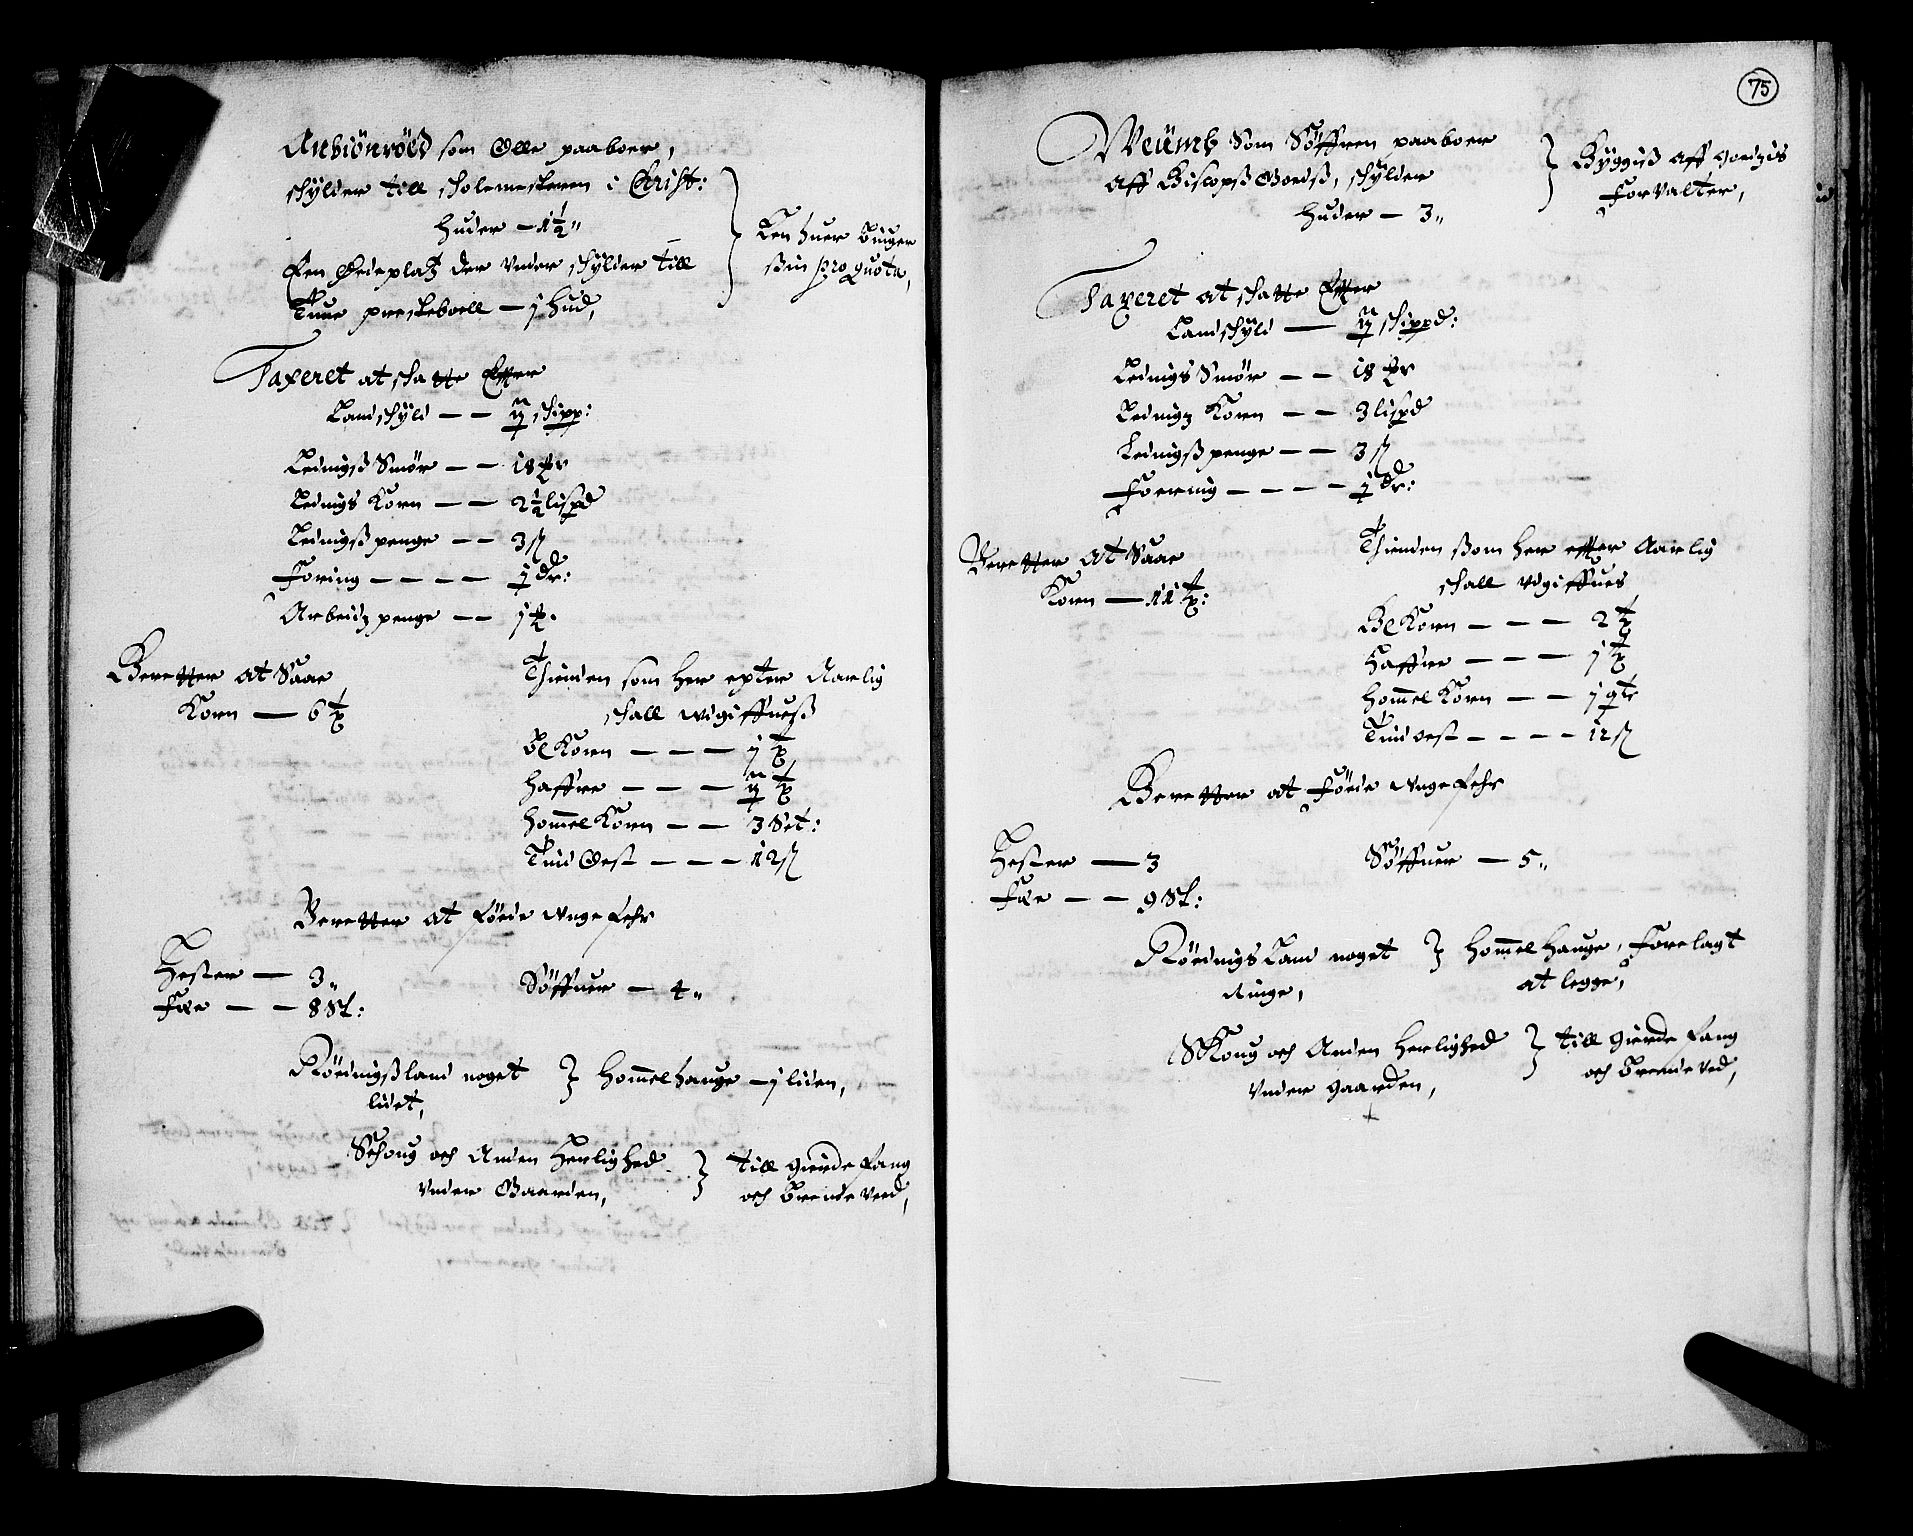 Anbiönröed som Olle paaboer,
schylder till scholemesteren i Christ:
huder — 1½ „
Een Ødeplatz der vnder schylder till
Tune presteboell — j hud,
Len huer bruger
sin pro Quota,
Taxeret at schatte Efter
Landschyld — — ij schipp:
Ledingß Smör — — 18
Ledings Korn — — 2½ lispd
Ledingß penge — — 3 ß
Foring — — — — j dr:
Arbeidz penge — — j
Beretter at Saae
Korn — 6 t
Thienden som her epter Aarlig
schall udgiffueß
Bl Korn — — — j t
Haffre — — — ij t
Hommel Korn — — 3 Set:
Tiid Oest — — — 12 ß
Beretter at föede Ungefehr
Hester — 3 „
Fæe — — 8 St:
Söffuer — 4 „
Röedningßland noget
lidet,
Hommelhauge — j liden,
Schoug och Anden Herlighed
Vnder Gaarden,
till gierdefang
och brendeveed,
75
Weümb Som Söffren paaboer
aff Bispß Goedß, schylder
huder — 3 „
Bÿggiß aff goedzis
Forvalter,
Taxeret at schatte Efter
Landschyld — ij schippd:
Ledings Smör — — 18
Ledingz Korn — — 3 lispd
Ledingß penge — — 3 ß
Foering — — — — j dr:
Beretter at Saae
Korn — 11 t:
Thienden ßom her effter Aarlig
schall udgiffues
Bl Korn — — — 2 t
Haffre — — — j t
Hommel Korn — — j qtr
Tiid oest — — — — 12 ß
Beretter at Föede Ungefehr
Hester — 3
Fæe — — 9 St:
Söffuer — 5 „
Röednings Land noget
Ringe,
Hommel Hauge, Forelagt
at legge,
Skoug och Anden Herlighed
Vnder gaarden,
till gierde fang
och brende ved,